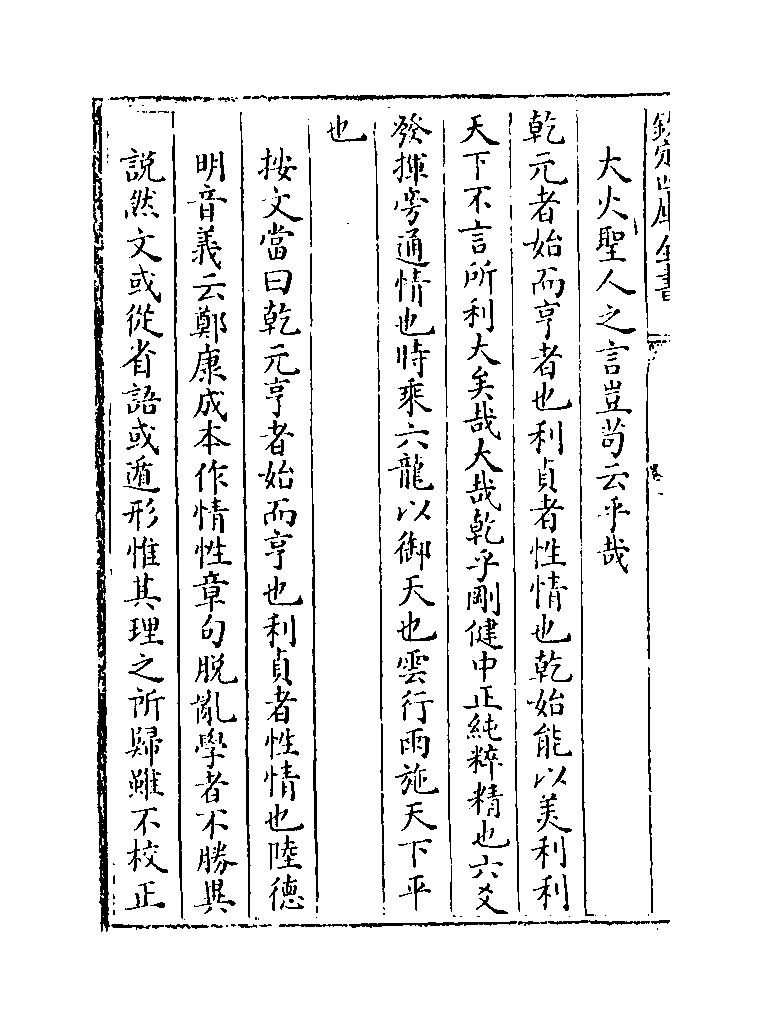 欽定四庫全書
卷一
大火聖人之言豈苟云乎哉
乾元者始而亨者也利貞者性情也乾始能以美利利
天下不言所利大矣哉大哉乾乎剛健中正純粹精也六爻
發揮旁通情也時乘六龍以御天也雲行雨施天下平
也
按文當曰乾元亨者始而亨也利貞者性情也陸德
明音義云鄭康成本作情性章句脫亂學者不勝異
說然文或從省語或遁形惟其理之所歸雖不校正